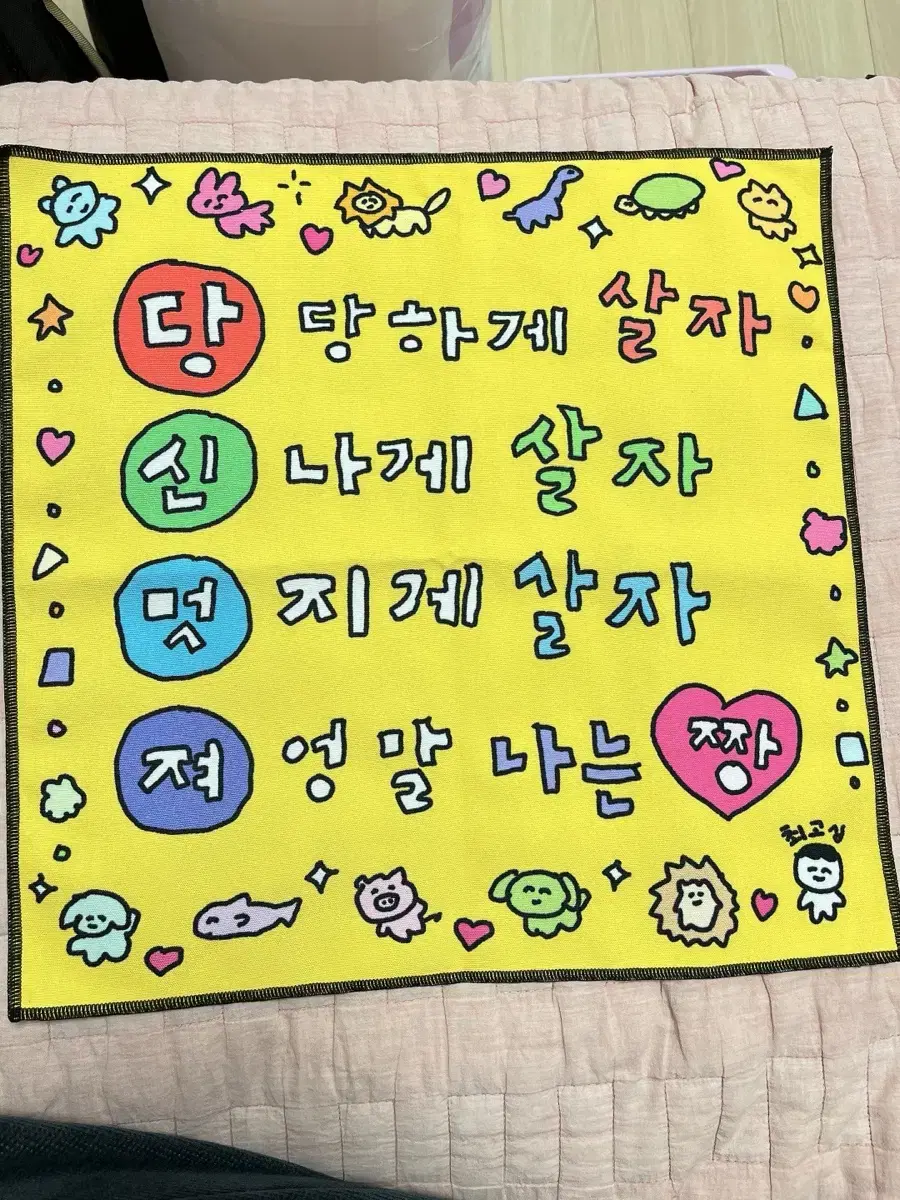 당 당하게 살자
신 나게 살자
멋 지게 살자
져 엉말 나는 짱
최고심